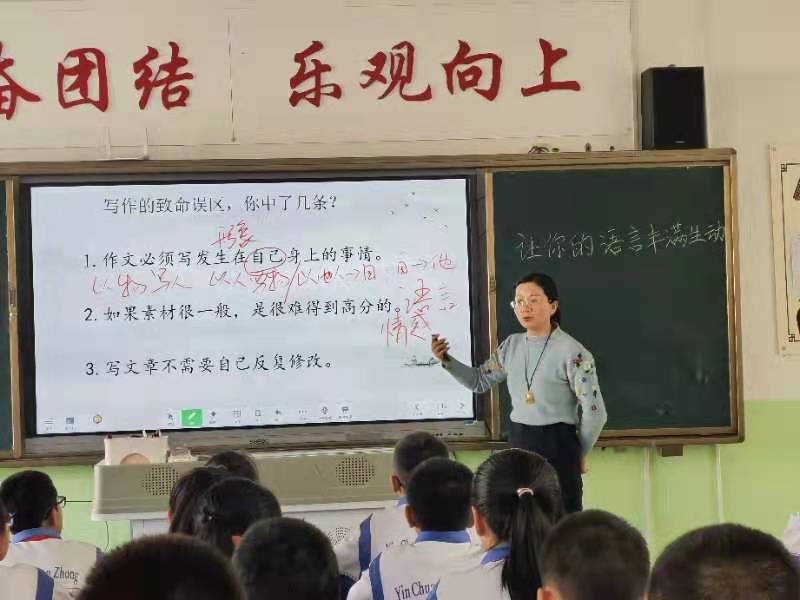 奋团结 乐观向上
写作的致命误区，你中了几条？
形象
1. 作文必须写发生在自己身上的事情。
以物写人 以人写物 以他人→自 自→他
2. 如果素材很一般，是很难得到高分的。
语言
情感
3. 写文章不需要自己反复修改。
让你的语言丰满生动
Yin Chu
n Zhong